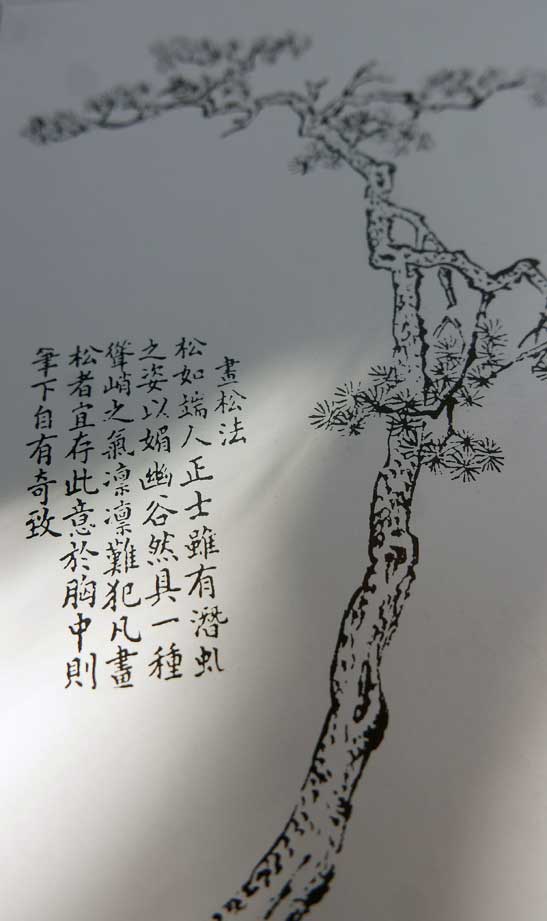 畫松法
松如端人正士雖有潛虬
之姿以媚幽谷然具一種
聳峭之氣凛凛難犯凡畫
松者宜存此意於胸中則
筆下自有奇致